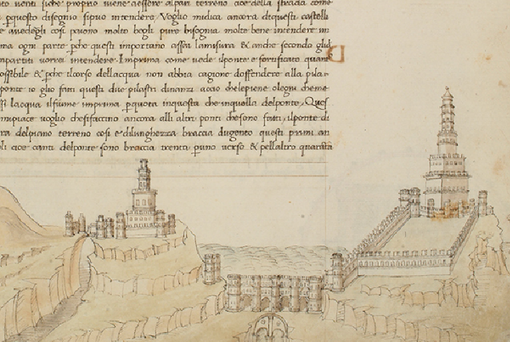 to venti siche proprio viene aessere alpari terreno cioe della strada come
pquesto disegno sipuo intendere Voglio mudica ancora diquesti castelli
e auedegli cosi pouono molto begli pure bisogna molto bene intendere in
ma ogni parte pche questi importano assai lamisura & anche secondo gli
mpartiti vorra intendere Imprima come vede ilponte e fortificato quanto
ossibile & pche ilcorso dellacqua non abbia cagione doffendere alla pila
ponte io gli fatti questi due pilastri dinanzi accio chelepiene ogni che me
si lacqua ilfiume imprima pquota inquesta che inquella delponte Quest
mipiace voglio chesifaccino ancora alli altri ponti chesono fatti ilponte di
ra delpiano terreno cosi e dilunghezza braccia dugento questi primi an
gli cioe canti delponte sono braccia trenta puno verso & pellaltro quaranta
D